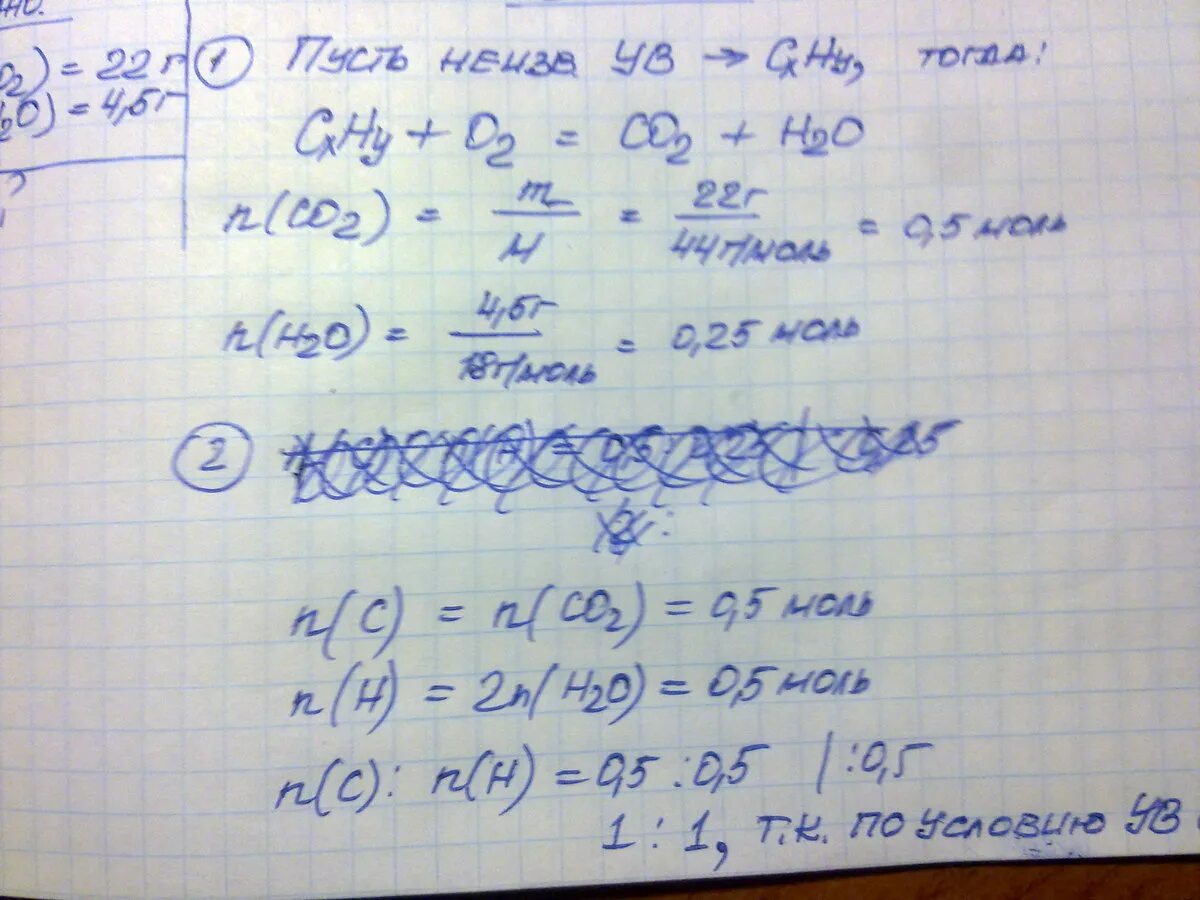 но.
O₂) = 22 г
H₂O) = 4,5г
?
① Пусть неизв УВ → CxHy, тогда:
CxHy + O₂ = CO₂ + H₂O
n(CO₂) = m/M = 22г/44г/моль = 0,5 моль
n(H₂O) = 4,5г/18г/моль = 0,25 моль
②
n(C) = n(CO₂) = 0,5 моль
n(H) = 2n(H₂O) = 0,5 моль
n(C) : n(H) = 0,5 : 0,5 | :0,5
1 : 1, т.к. по условию УВ